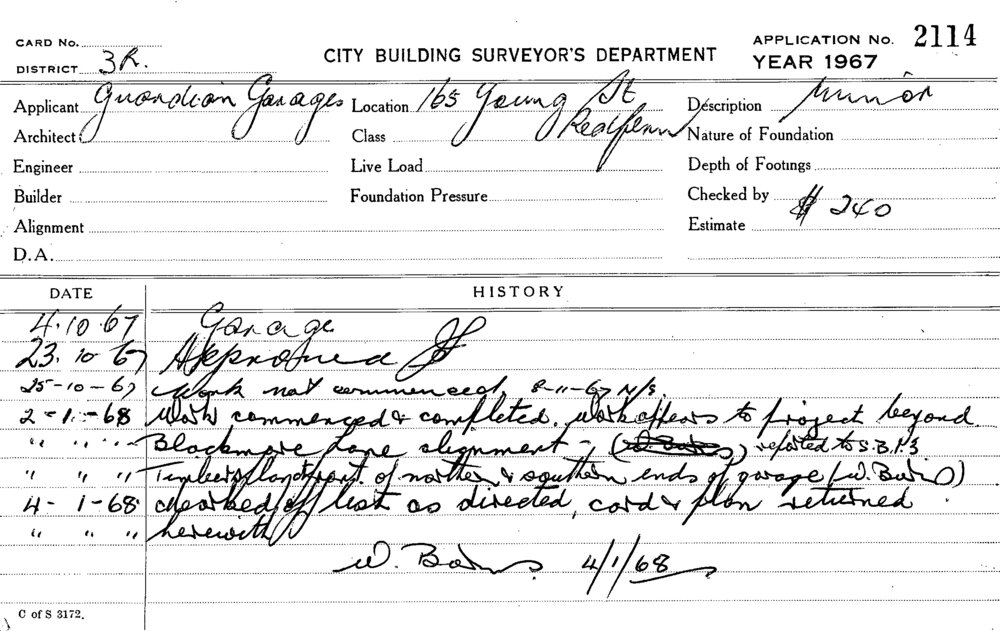 CARD No.
DISTRICT 3R.
CITY BUILDING SURVEYOR'S DEPARTMENT
APPLICATION No. 2114
YEAR 1967
Applicant Guardian Garages Location 165 Young St Redfern Description Minor
Architect Class Nature of Foundation
Engineer Live Load Depth of Footings
Builder Foundation Pressure Checked by
Alignment Estimate $ 240
D.A.
DATE HISTORY
4.10.67 Garage
23.10.67 Approved
25-10-67 Work not commenced, 8-11-67 N/S
2-1-68 Work commenced & completed. Work appears to project beyond
" " " Blackmore Lane alignment - reported to S.B.I.3
" " " Timber of northern & southern ends of garage (W. )
4-1-68 marked off list as directed, card & plan returned
" " " herewith
W. 4/1/68
C of S 3172.